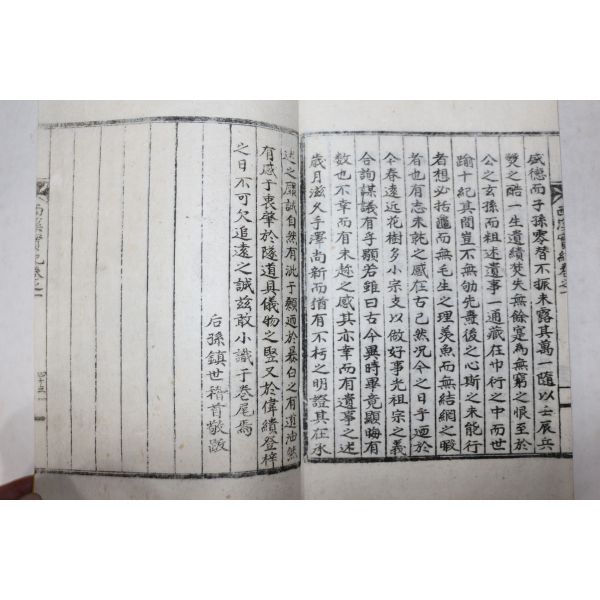 盛德而子孫零替不振未露其萬一隨以壬辰兵
燹之酷一生遺績焚失無餘寔爲無窮之恨至於
公之玄孫而祖述遺事一通藏在巾行之中而世
踰十紀其間豈不無勉先㷌後之心斯之未能行
者想必拈龜而無毛生之理羡魚而無結網之暇
者也有志未就之感在古已然况今之日乎廼於
今春遠近花樹多小宗支以做好事光祖宗之義
合詢謀議有孚顒若雖曰古今異時畢竟顯晦有
數也不幸而有未趁之感其亦幸而有遺事之述
歲月滋久手澤尚新而猶有不朽之明證其在承
述之嚴誠自然有泚于顙廼於暴白之有道油然
有感于衷肇於隧道具儀物之堅又於偉績登梓
之日不可欠追遠之誠玆敢小識于卷尾焉
后孫鎮世稽首敬跋
西溪實紀卷之一
四十五